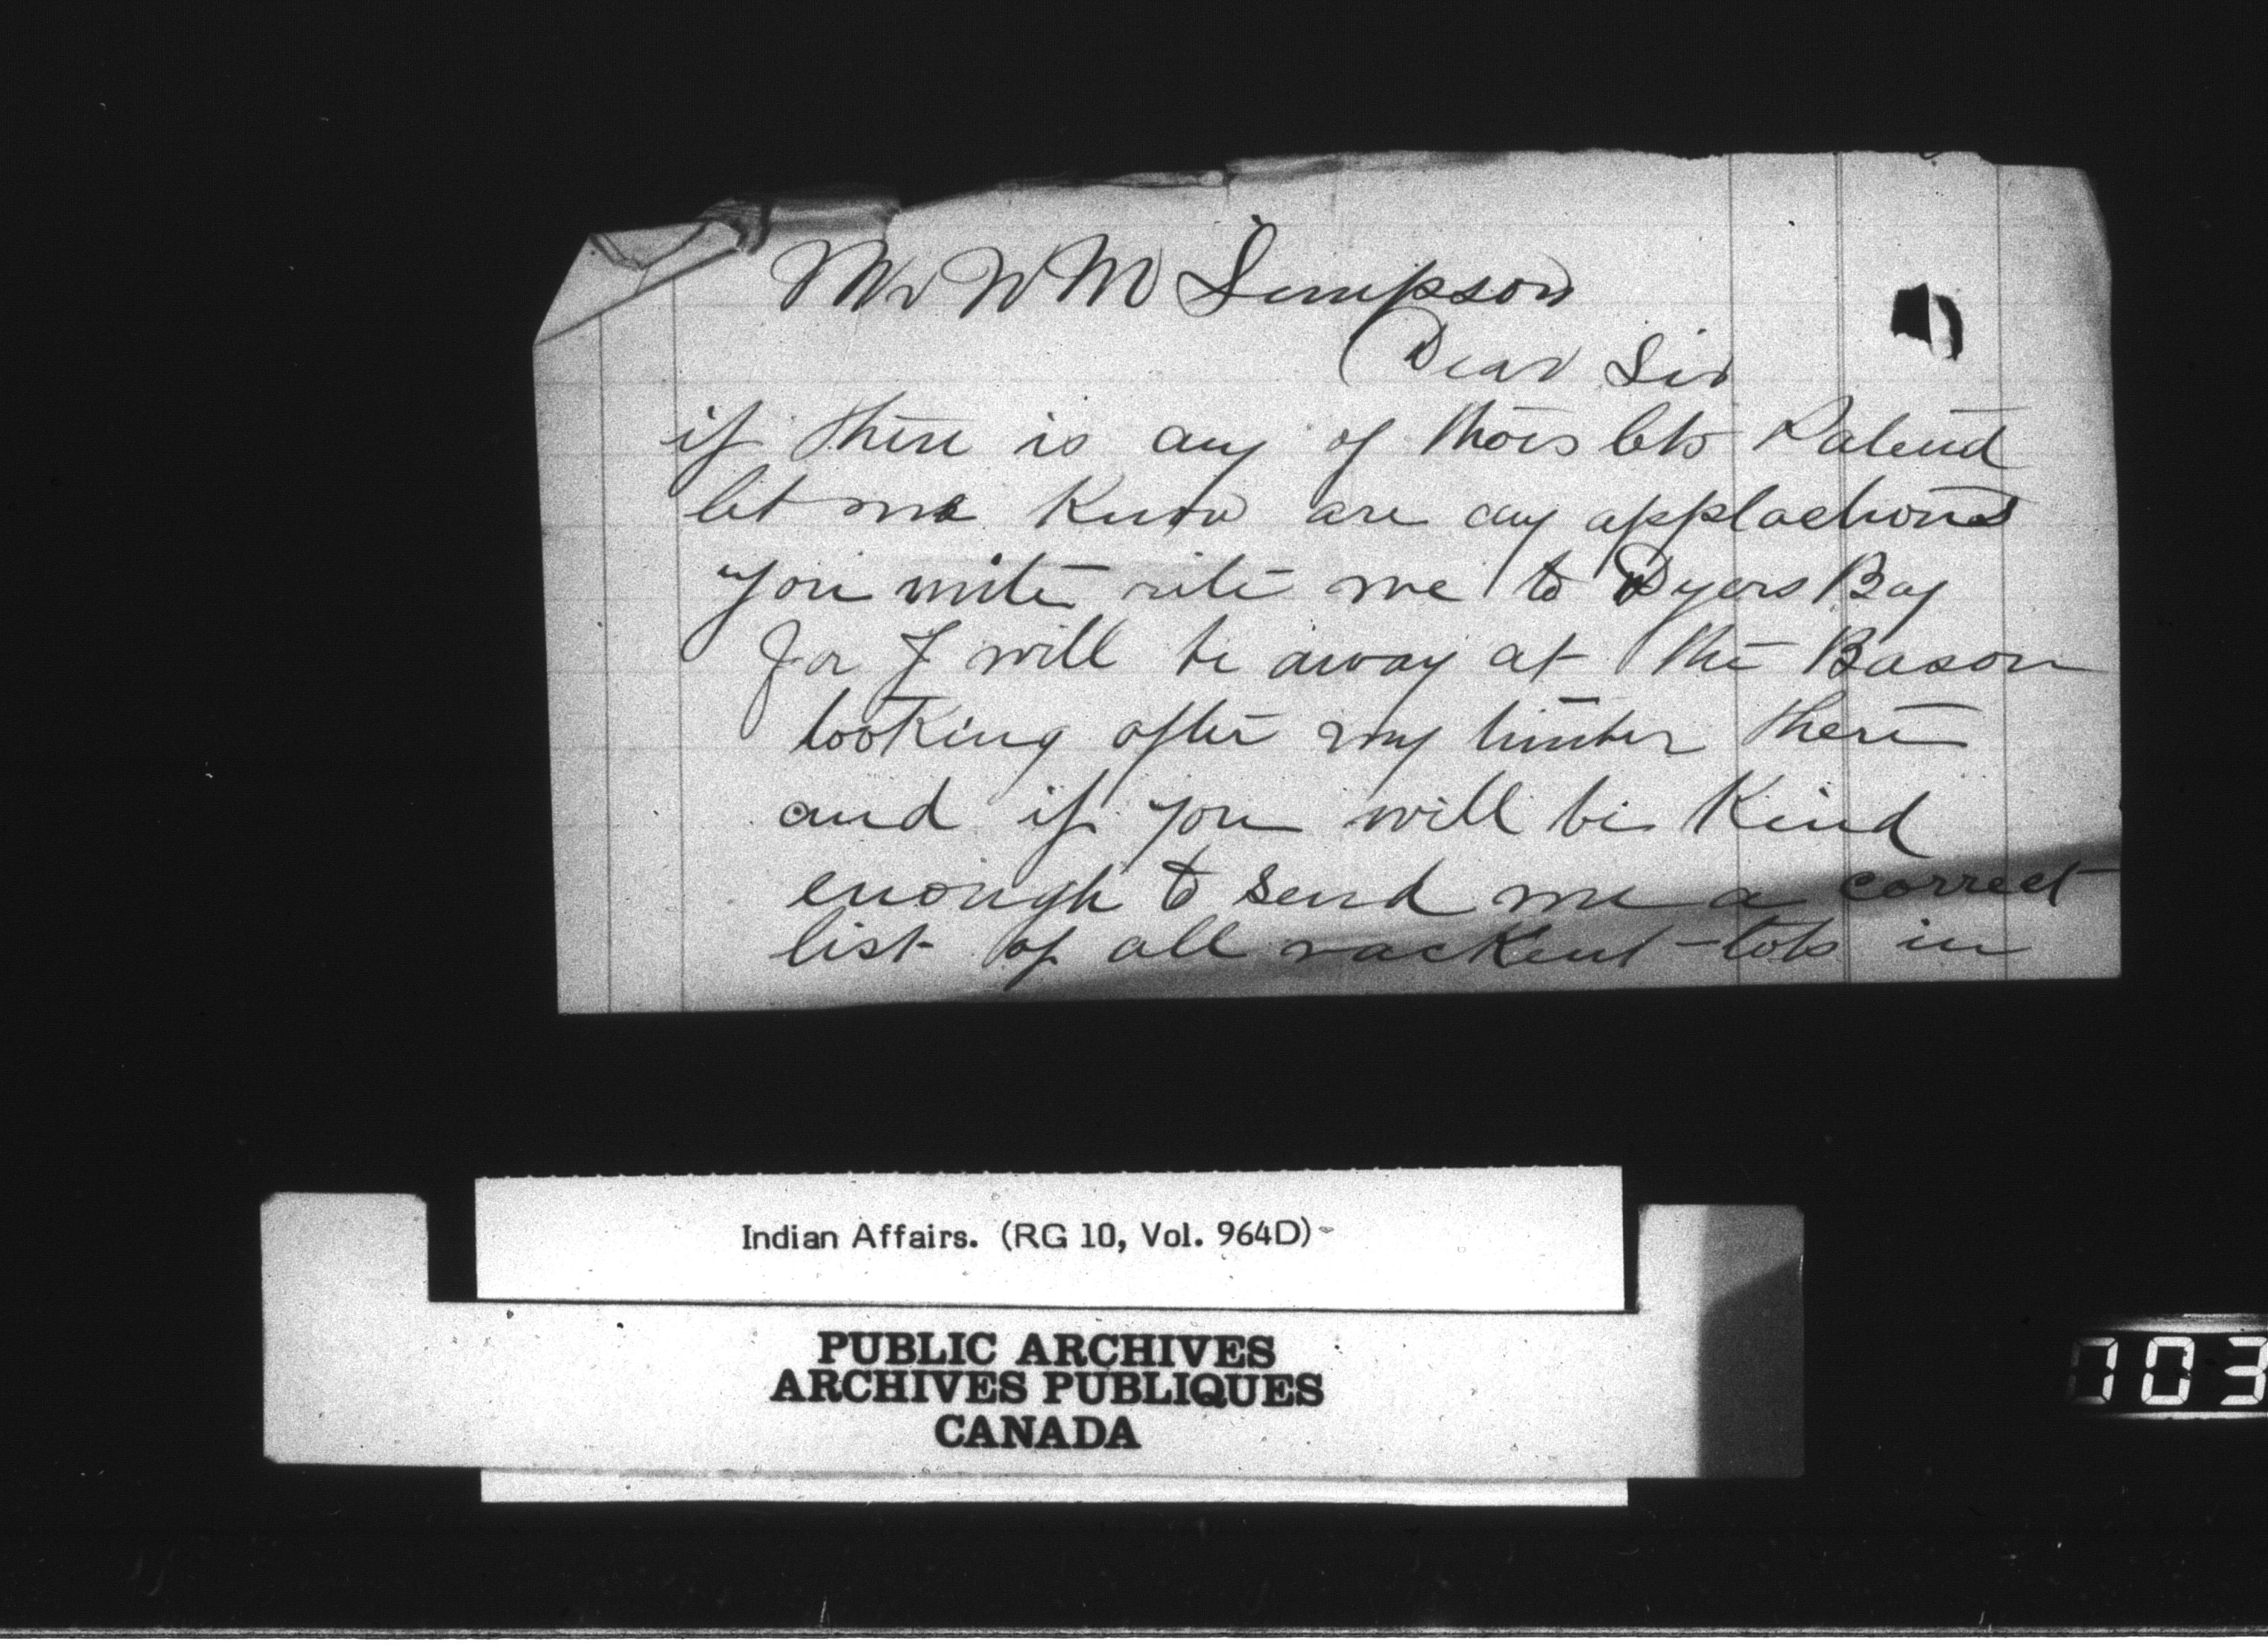 Mr W M Simpson
Dear Sir
if there is any of thois lots Patend
let me know are any applactions
you mite rite me to Dyers Bay
for I will be away at the Bason
looking after my timber there
and if you will be kind
enough to send me a correct
list of all vackent lots in
Indian Affairs. (RG 10, Vol. 964D)
PUBLIC ARCHIVES
ARCHIVES PUBLIQUES
CANADA
703